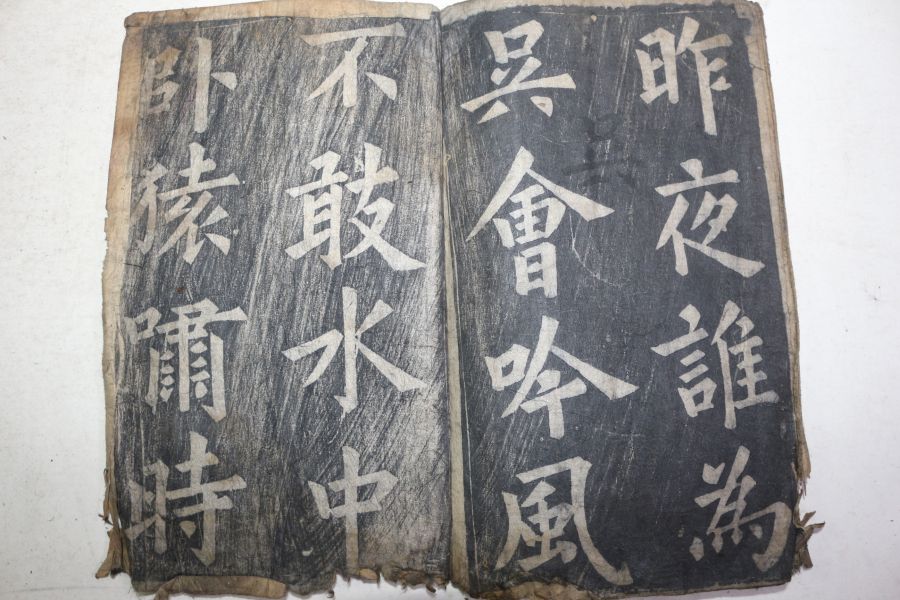 昨夜誰為
吳會吟風
不敢水中
卧猿嘯時